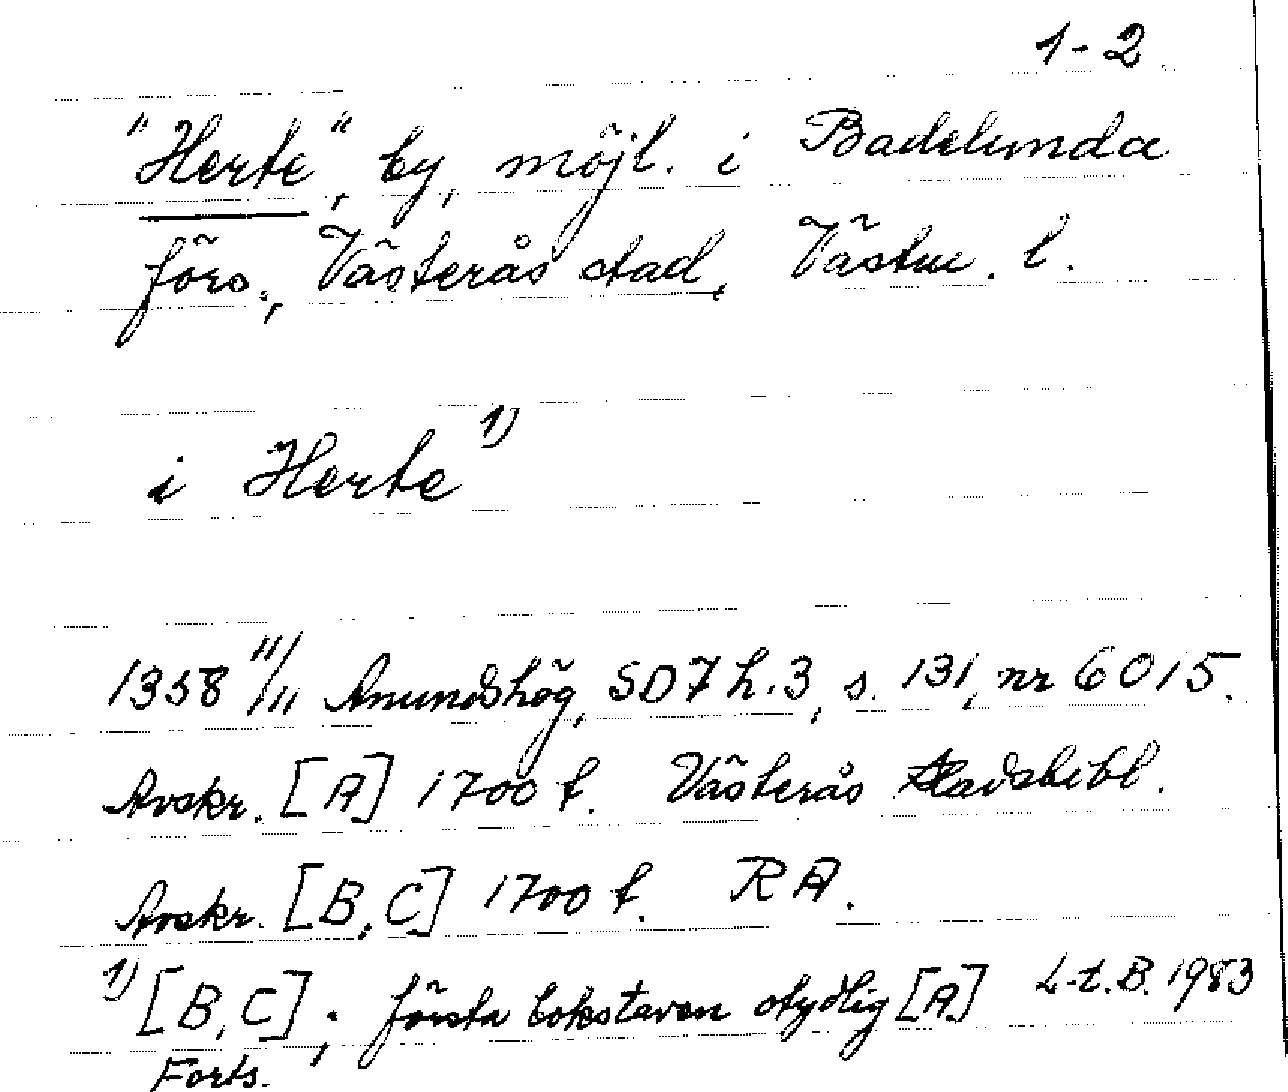 1-2
"Herte", by, möjl. i Badelunda
förs., Västerås stad, Västm. l.
i Herte 1)
1358 11/11 Anundshög, SD 7 h. 3, s. 131, nr 6015.
Avskr. [A] 1700 t. Västerås stadsbibl.
Avskr. [B, C] 1700 t. RA.
1) [B, C]; första bokstaven otydlig [A] L-t. B. 1983
Forts.